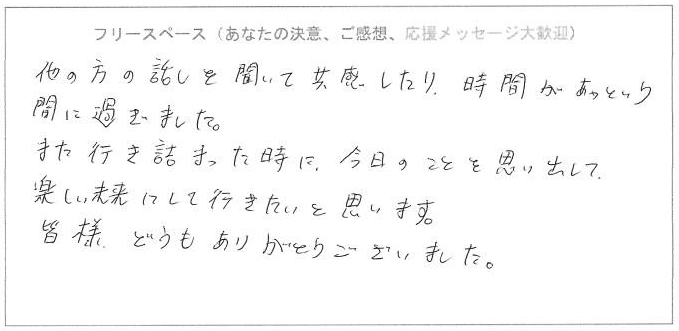 フリースペース（あなたの決意、ご感想、応援メッセージ大歓迎）
他の方の話しを聞いて共感したり、時間があっという
間に過ぎました。
また行き詰まった時に、今日のことを思い出して、
楽しい未来にして行きたいと思います。
皆様、どうもありがとうございました。